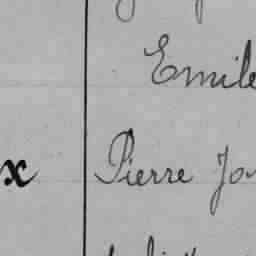 Emile
x Pierre Jo